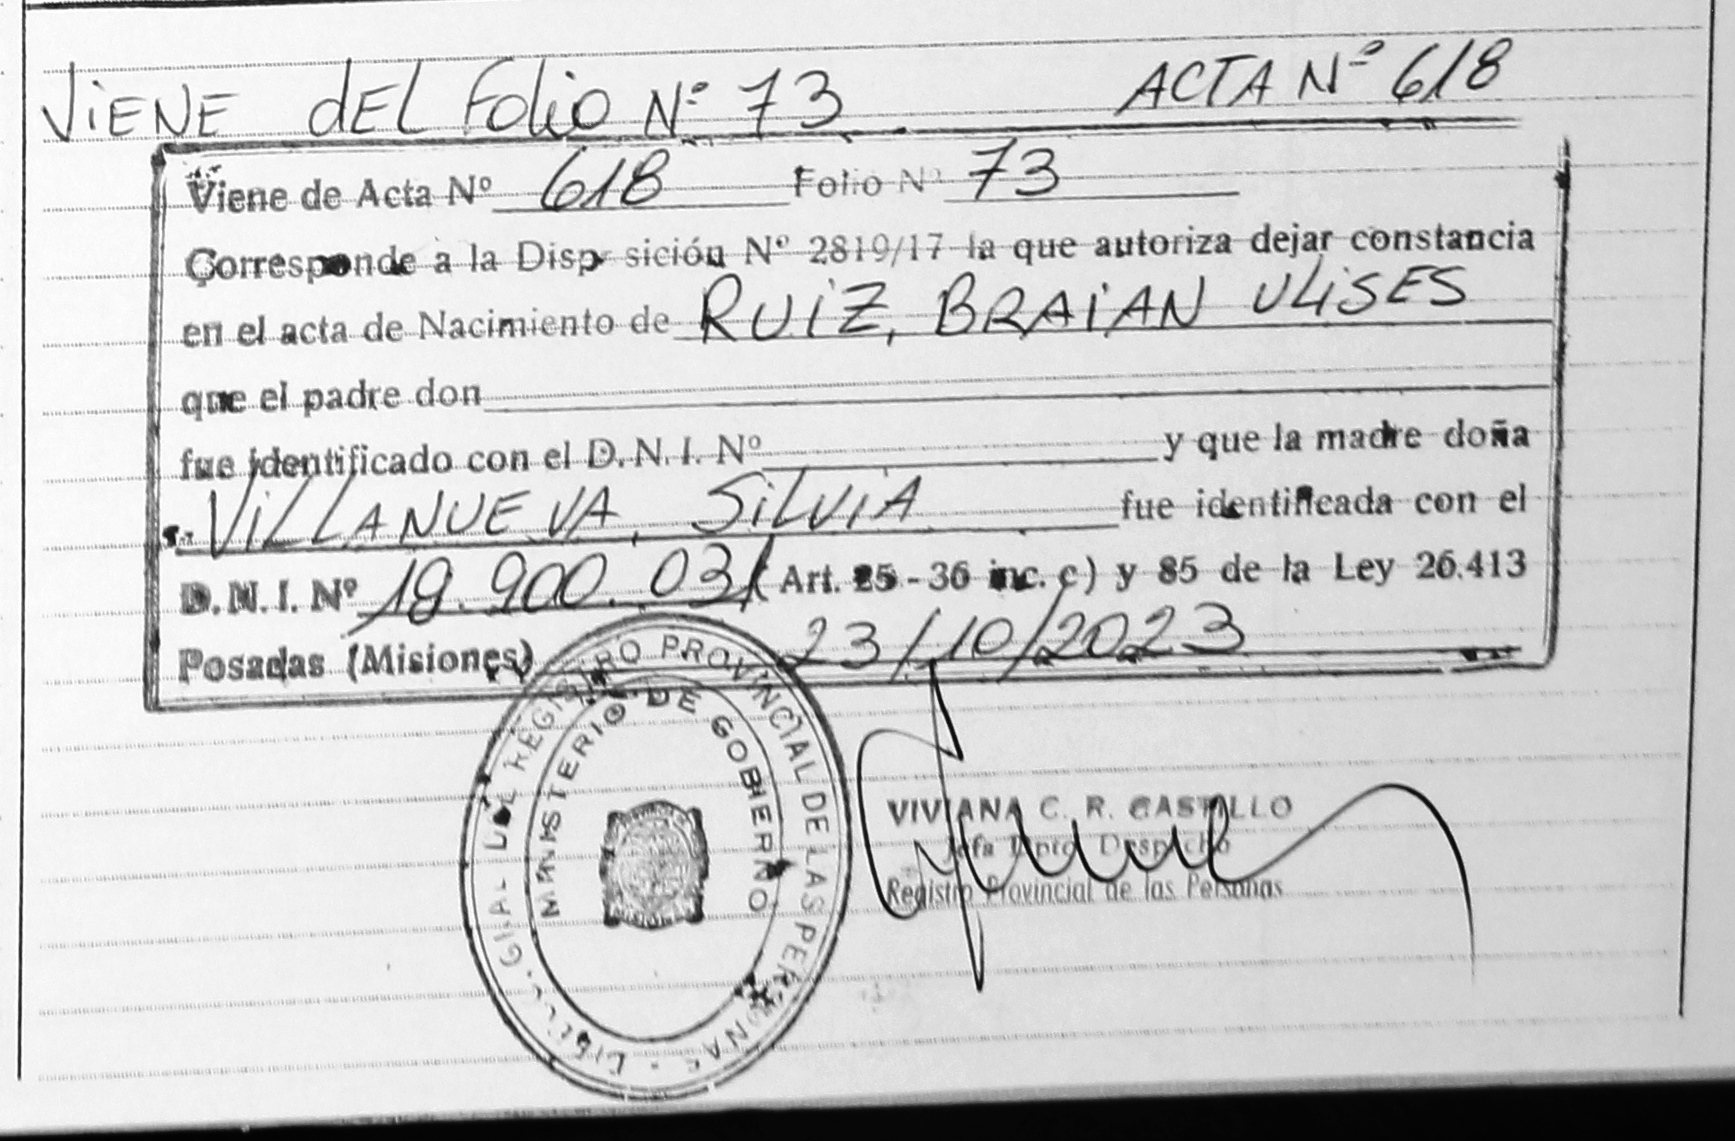 ViENE dEL Folio Nº 73 ACTA Nº 618
Viene de Acta Nº 618 Folio Nº 73
Corresponde a la Disp sición Nº 2819/17 la que autoriza dejar constancia
en el acta de Nacimiento de RUiZ, BRAiAN ULiSES
que el padre don
fue identificado con el D.N.I. Nº y que la madre doña
ViLLANUEVA, SiLViA fue identificada con el
D.N.I. Nº 18.900.031 Art. 25-36 inc. c) y 85 de la Ley 26.413
Posadas (Misiones) 23/10/2023
REGISTRO PROVINCIAL DE LAS PERSONAS
MINISTERIO DE GOBIERNO
VIVIANA C. R. CASTILLO
Jefa Dpto. Despacho
Registro Provincial de las Personas